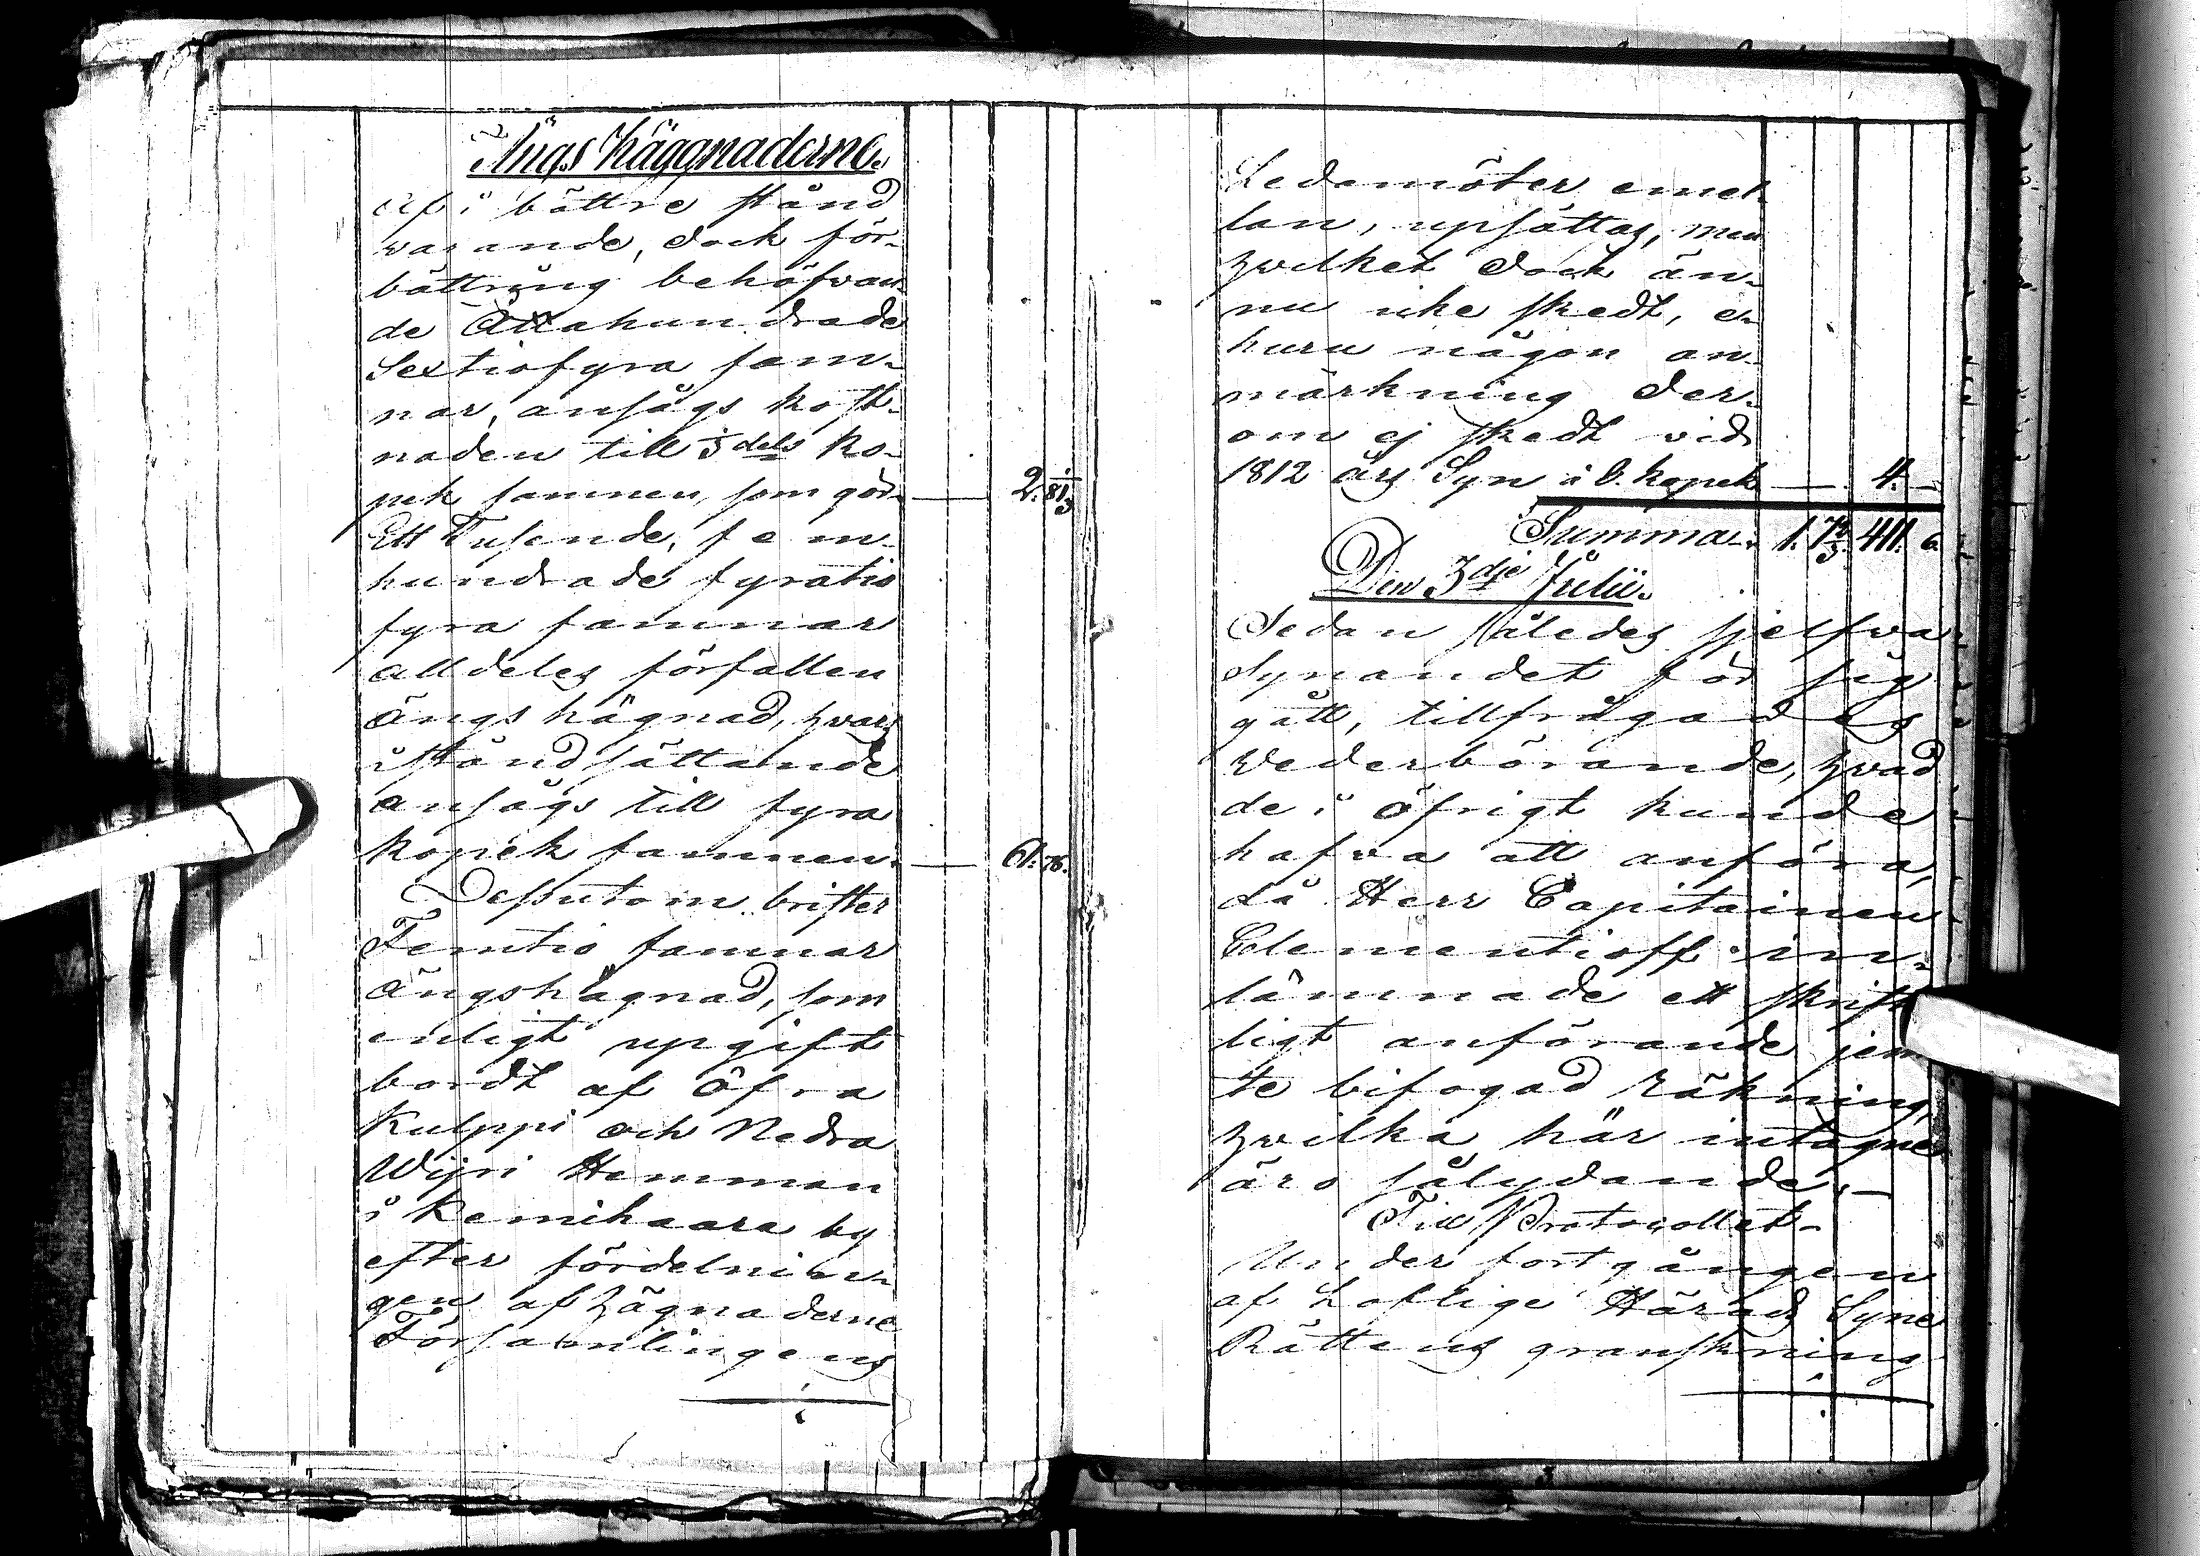 Ängs Häggnaderne
af i bättre stånd
warande, dock för-
bättring behöfwan-
de Åttahundrade
Sextiofyra fam-
nar, ansågs kost-
naden till ⅓ dels ko-
pek famnen, som gör — 2. 81⅓
Ett Tusende, fem-
hundrade fyratio
fyra famnar
alldeles förfallen
ängshägnad, hvars
iståndsättande
ansågs till fyra
kopek famnen. — 61. 76.
Dessutom brister
Femtio famnar
ängshägnad, som
enligt upgift
bordt af Öfra
Kulppi och Nedra
Wijri Hemman
i Kemihaara by
efter fördelnin-
gen af hägnaderne
Församlingens
Ledamöter emel-
lan, upsättas, men
hvilket dock än-
nu icke skedt, e-
huru någon an-
märkning der-
om ej skedt vid
1812 års Syn à 8. kopek — 4. —
Summa. 1. 411. 6
Den 3dje Julii.
Sedan således sjelfva
Synandet för sig
gått, tillfrågades
Wederbörande, hvad
de i öfrigt kunde
hafva att anföra,
då Herr Capitainen
Clementioff in-
lämnade ett skrift-
ligt anförande jem-
te bifogad räkning,
hvilka här intagne
äro sålydande. —
Till Protocollet.
Under fortgången
af Loflige Härads Syne
Rättens granskning